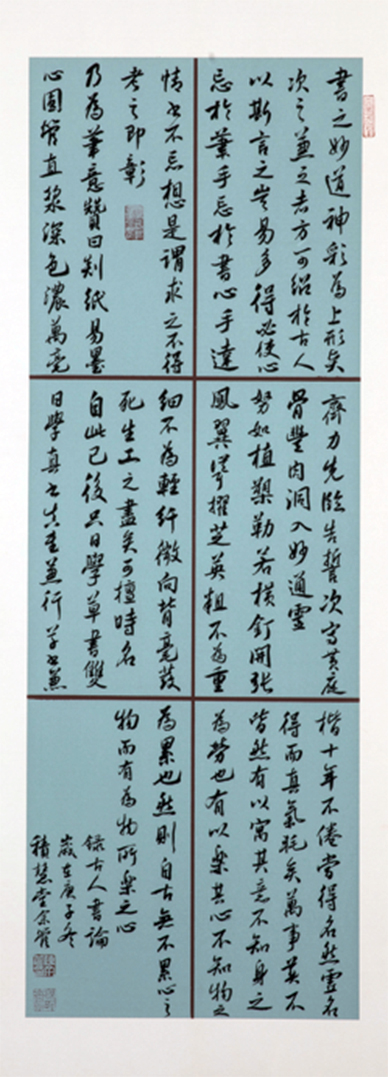 書之妙道神彩為上形質
次之兼之者方可紹於古人
以斯言之豈易多得必使心
忘於筆手忘於書心手達
情書不忘想是謂求之不得
考之即彰
乃為筆意贊曰剡紙易墨
心圓管直漿深色濃萬毫
齊力先臨告誓次寫黃庭
骨豐肉潤入妙通靈
努如植槊勒若橫釘開張
鳳翼聳擢芝英粗不為重
細不為輕纤微向背毫髮
死生工之盡矣可擅時名
自此已後只日學草書雙
日學真書真書兼行草書兼
楷十年不倦當得名然虛名
得而真氣耗矣萬事莫不
皆然有以寓其意不知身之
為勞也有以樂其心不知物之
為累也然則自古無不累心之
物而有為物所樂之心
錄古人書論
歲在庚子冬
積慧堂